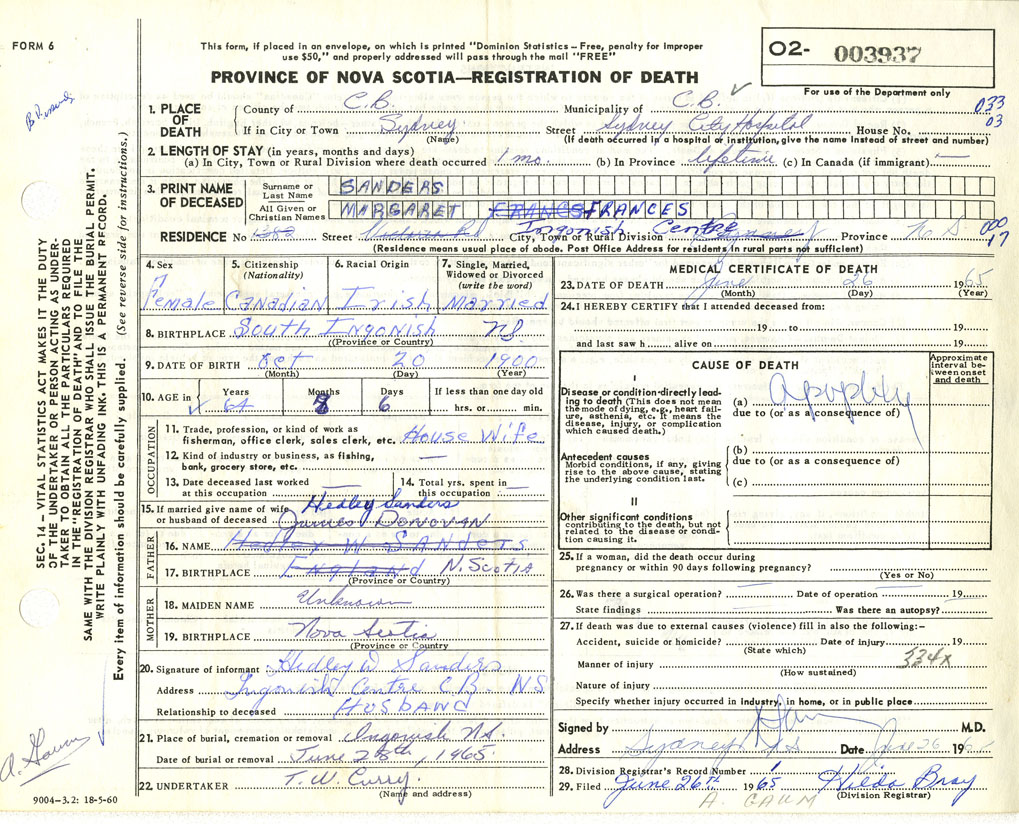 FORM 6
This form, if placed in an envelope, on which is printed "Dominion Statistics – Free, penalty for improper
use $50," and properly addressed will pass through the mail "FREE"
PROVINCE OF NOVA SCOTIA—REGISTRATION OF DEATH
O2- 003937
For use of the Department only
033
03
1. PLACE OF DEATH
County of C.B. Municipality of C.B. ✓
If in City or Town Sydney (Name) Street Sydney City Hospital House No.
(If death occurred in a hospital or institution, give the name instead of street and number)
2. LENGTH OF STAY (in years, months and days)
(a) In City, Town or Rural Division where death occurred 1 mo. (b) In Province lifetime (c) In Canada (if immigrant) —
3. PRINT NAME OF DECEASED
Surname or Last Name SANDERS
All Given or Christian Names MARGARET FRANCES
Ingonish Centre
RESIDENCE No. Street City, Town or Rural Division Province N S
000
17
(Residence means usual place of abode. Post Office Address for residents in rural parts not sufficient)
4. Sex Female
5. Citizenship (Nationality) Canadian
6. Racial Origin Irish
7. Single, Married, Widowed or Divorced (write the word) Married
8. BIRTHPLACE South Ingonish NS
(Province or Country)
9. DATE OF BIRTH Oct 20 1900
(Month) (Day) (Year)
10. AGE in Years 64 Months 8 Days 6 If less than one day old hrs. or min.
OCCUPATION
11. Trade, profession, or kind of work as
fisherman, office clerk, sales clerk, etc. House Wife
12. Kind of industry or business, as fishing,
bank, grocery store, etc —
13. Date deceased last worked at this occupation —
14. Total yrs. spent in this occupation —
15. If married give name of wife or husband of deceased Hedley Sanders
FATHER
James DONOVAN
16. NAME Hedley W SANDERS
17. BIRTHPLACE England N. Scotia
(Province or Country)
MOTHER
18. MAIDEN NAME Unknown
19. BIRTHPLACE Nova Scotia
(Province or Country
20. Signature of informant Hedley W Sanders
Address Ingonish Centre C B. NS
Relationship to deceased HUSBAND
21. Place of burial, cremation or removal Ingonish N.S.
Date of burial or removal June 28th, 1965
22. UNDERTAKER T. W. Curry.
(Name and address)
MEDICAL CERTIFICATE OF DEATH
23. DATE OF DEATH June 26 1965
(Month) (Day) (Year)
24. I HEREBY CERTIFY that I attended deceased from:
19 to 19
and last saw h alive on 19
CAUSE OF DEATH
Approximate interval between onset and death
I
Disease or condition directly leading to death (This does not mean the mode of dying, e.g., heart failure, asthenia, etc. It means the disease, injury, or complication which caused death.)
(a) Apoplexy
due to (or as a consequence of)
Antecedent causes
Morbid conditions, if any, giving rise to the above cause, stating the underlying condition last.
(b)
due to (or as a consequence of)
(c)
II
Other significant conditions
contributing to the death, but not related to the disease or condition causing it.
25. If a woman, did the death occur during
pregnancy or within 90 days following pregnancy?
(Yes or No)
26. Was there a surgical operation? Date of operation 19
State findings Was there an autopsy?
27. If death was due to external causes (violence) fill in also the following:–
Accident, suicide or homicide? Date of injury 19
(State which)
334x
Manner of injury
(How sustained)
Nature of injury
Specify whether injury occurred in industry, in home, or in public place
Signed by M.D.
Address Sydney N S Date June 26 196
28. Division Registrar's Record Number 1
29. Filed June 26th 1965 Hilda Bray
(Division Registrar)
A. GAUM
SEC. 14 – VITAL STATISTICS ACT MAKES IT THE DUTY
OF THE UNDERTAKER OR PERSON ACTING AS UNDER-
TAKER TO OBTAIN ALL THE PARTICULARS REQUIRED
IN THE "REGISTRATION OF DEATH" AND TO FILE THE
SAME WITH THE DIVISION REGISTRAR WHO SHALL ISSUE THE BURIAL PERMIT.
WRITE PLAINLY WITH UNFADING INK. THIS IS A PERMANENT RECORD.
Every item of information should be carefully supplied. (See reverse side for instructions.)
A. Gaum
9004–3.2: 18-5-60